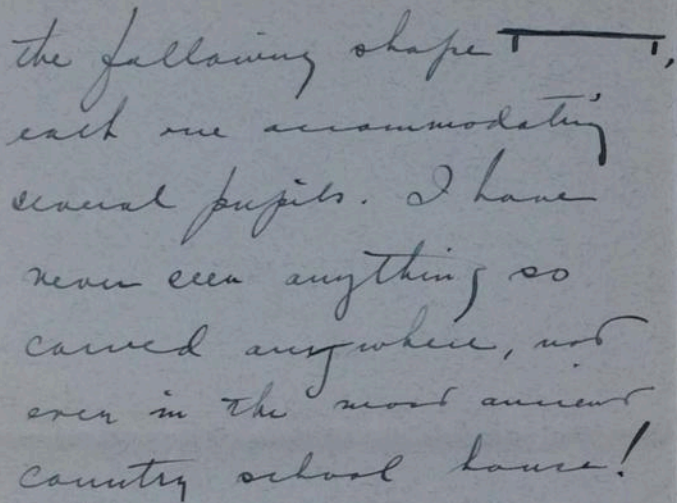 the following shape ,
each one accommodating
several pupils. I have
never seen anything so
carved anywhere, not
even in the most ancient
country school house!